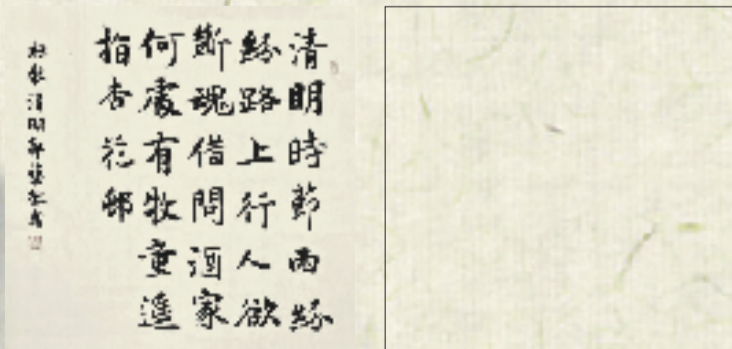 清明時節雨紛
紛路上行人欲
斷魂借問酒家
何處有牧童遥
指杏花邨
杜牧清明